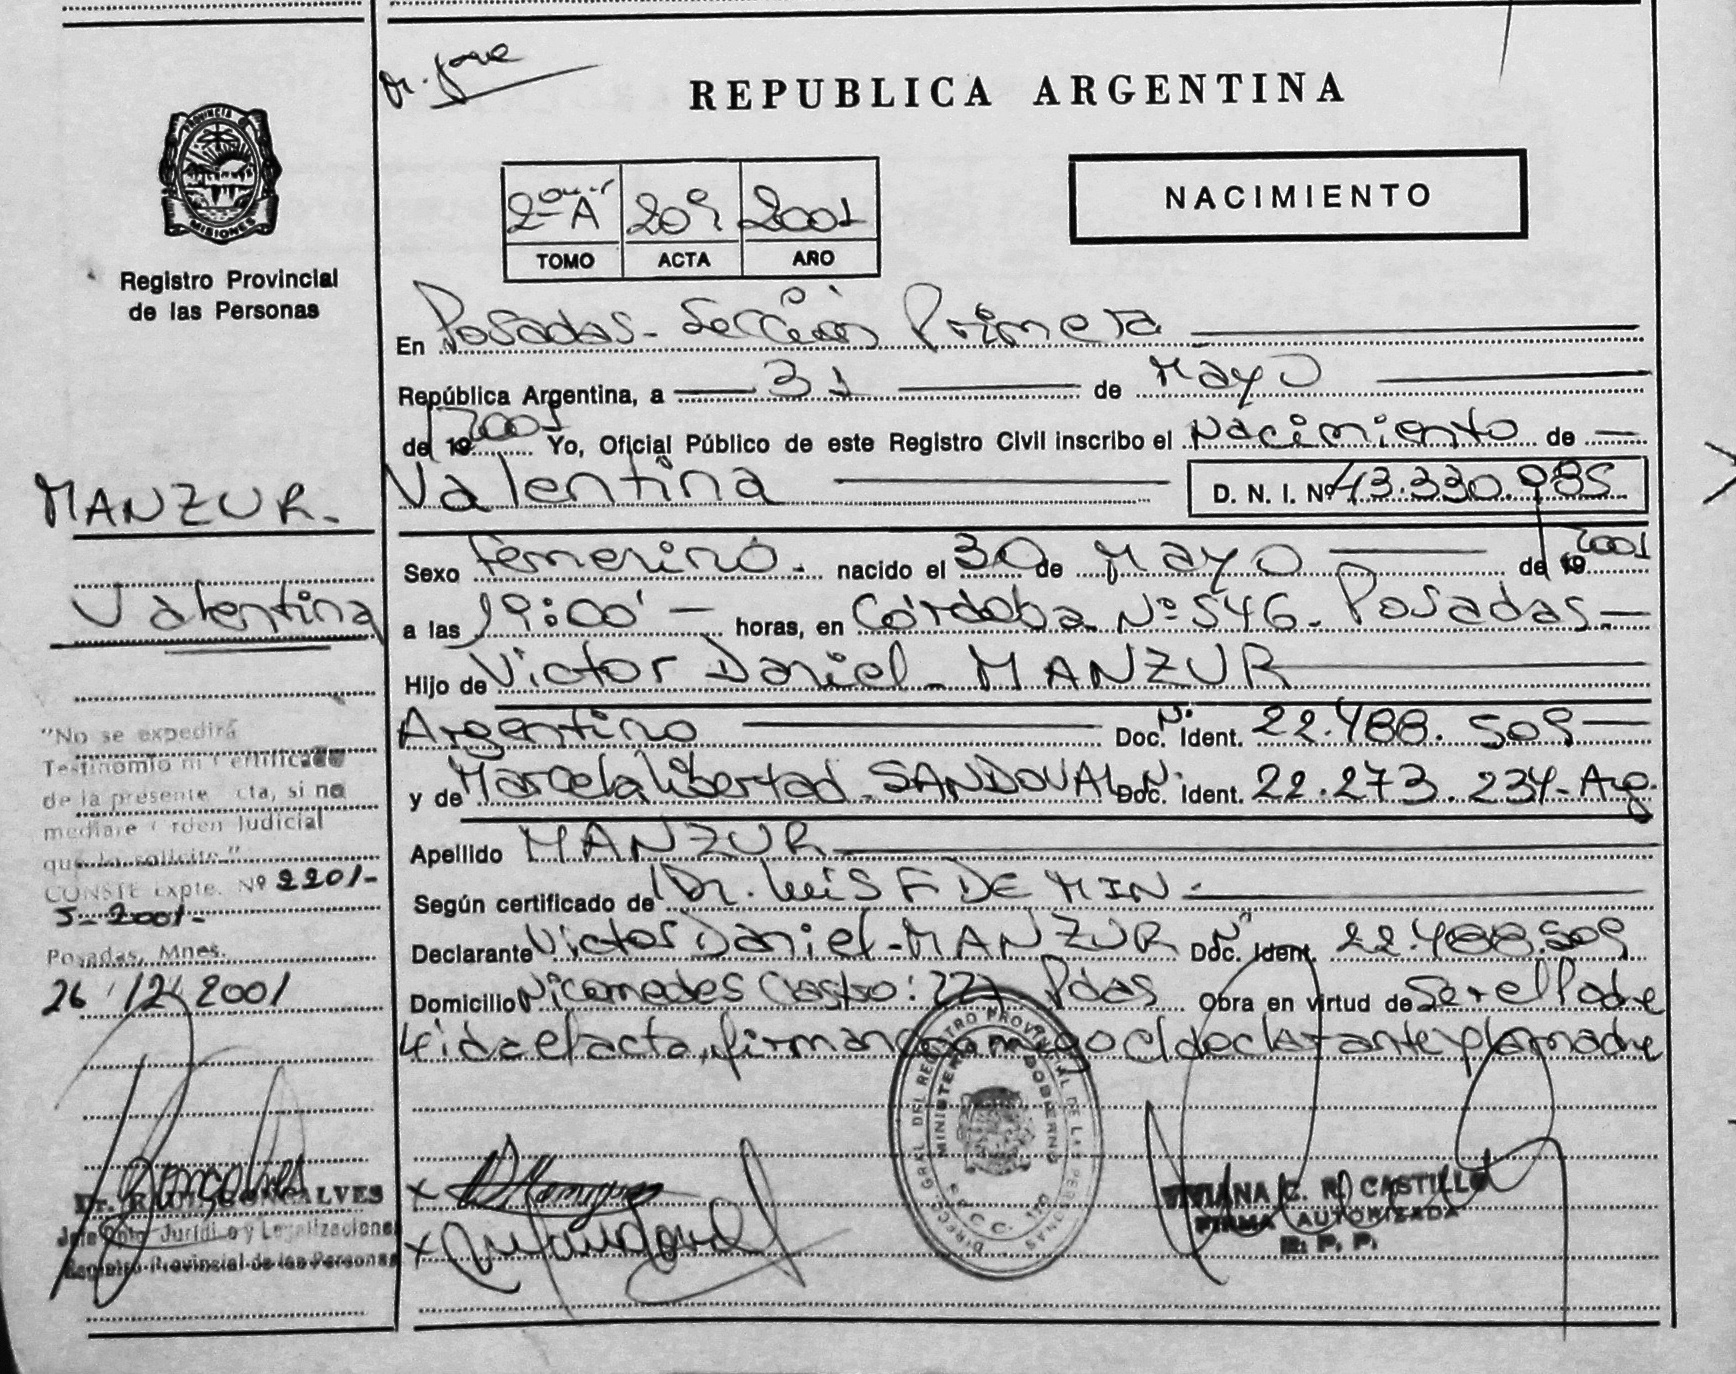 Dr. Jose
REPUBLICA ARGENTINA
PROVINCIA DE
MISIONES
Registro Provincial
de las Personas
2º "A" 209 2001
TOMO ACTA AÑO
NACIMIENTO
En Posadas - Sección Primera
República Argentina, a 31 de Mayo
de 19 2001 Yo, Oficial Público de este Registro Civil inscribo el Nacimiento de
Valentina D. N. I. Nº 43.330.985
MANZUR.
Valentina
Sexo femenino. nacido el 30 de Mayo de 19 2001
a las 19:00' horas, en Córdoba Nº 546. Posadas
Hijo de Victor Daniel - MANZUR
Argentino Doc. N. Ident. 22.488.509
y de Marcela Libertad SANDOVAL Doc. N. Ident. 22.273.234 - Arg.
Apellido MANZUR
Según certificado de Dr. Luis F DE MIN.
Declarante Victor Daniel - MANZUR Doc. Nº Ident. 22.488.509
Domicilio Nicomedes Castro: 227 Pdas Obra en virtud de Ser el Padre
Leida el acta, firman conmigo el declarante y la madre
"No se expedirá
Testimonio ni Certificado
de la presente cta, si no
mediare Orden Judicial
que lo solicite."
CONSTE Expte. Nº 2201-
5-2001-
Posadas, Mnes.
26 / 12 / 2001
Dr. RAUL GONCALVES
Jefe Dpto Jurídico y Legalizaciones
Registro Provincial de las Personas
x
x
DIRECC. GRAL DEL REGISTRO PROVINCIAL DE LAS PERSONAS
MINISTERIO DE GOBIERNO
VIVIANA C. R. CASTILLO
FIRMA AUTORIZADA
R. P. P.